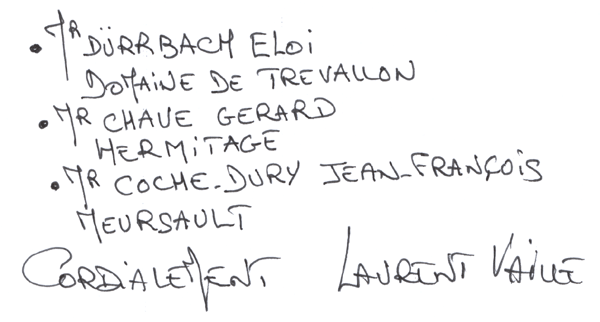 • MR DÜRRBACH ELOI
DOMAINE DE TREVALLON
• MR CHAVE GERARD
HERMITAGE
• MR COCHE-DURY JEAN-FRANÇOIS
MEURSAULT
CORDIALEMENT LAURENT VAILLÉ